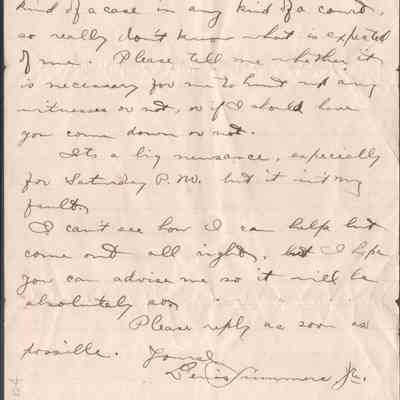 kind of a case in any kind of a court,
so really don't know what is expected
of me. Please tell me whether it
is necessary for me to hunt up any
witnesses or not, or if I should have
you come down or not.
Its a big nuisance, especially
for Saturday P.M. but it isn't my
fault.
I can't see how I can help but
come out all right, but I hope
you can advise me so it will be
absolutely so.
Please reply as soon as
possible. Yours,
Summers, Jr.